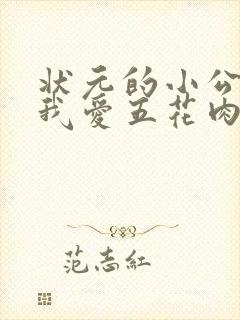 状元的小公
我爱五花肉
范志红